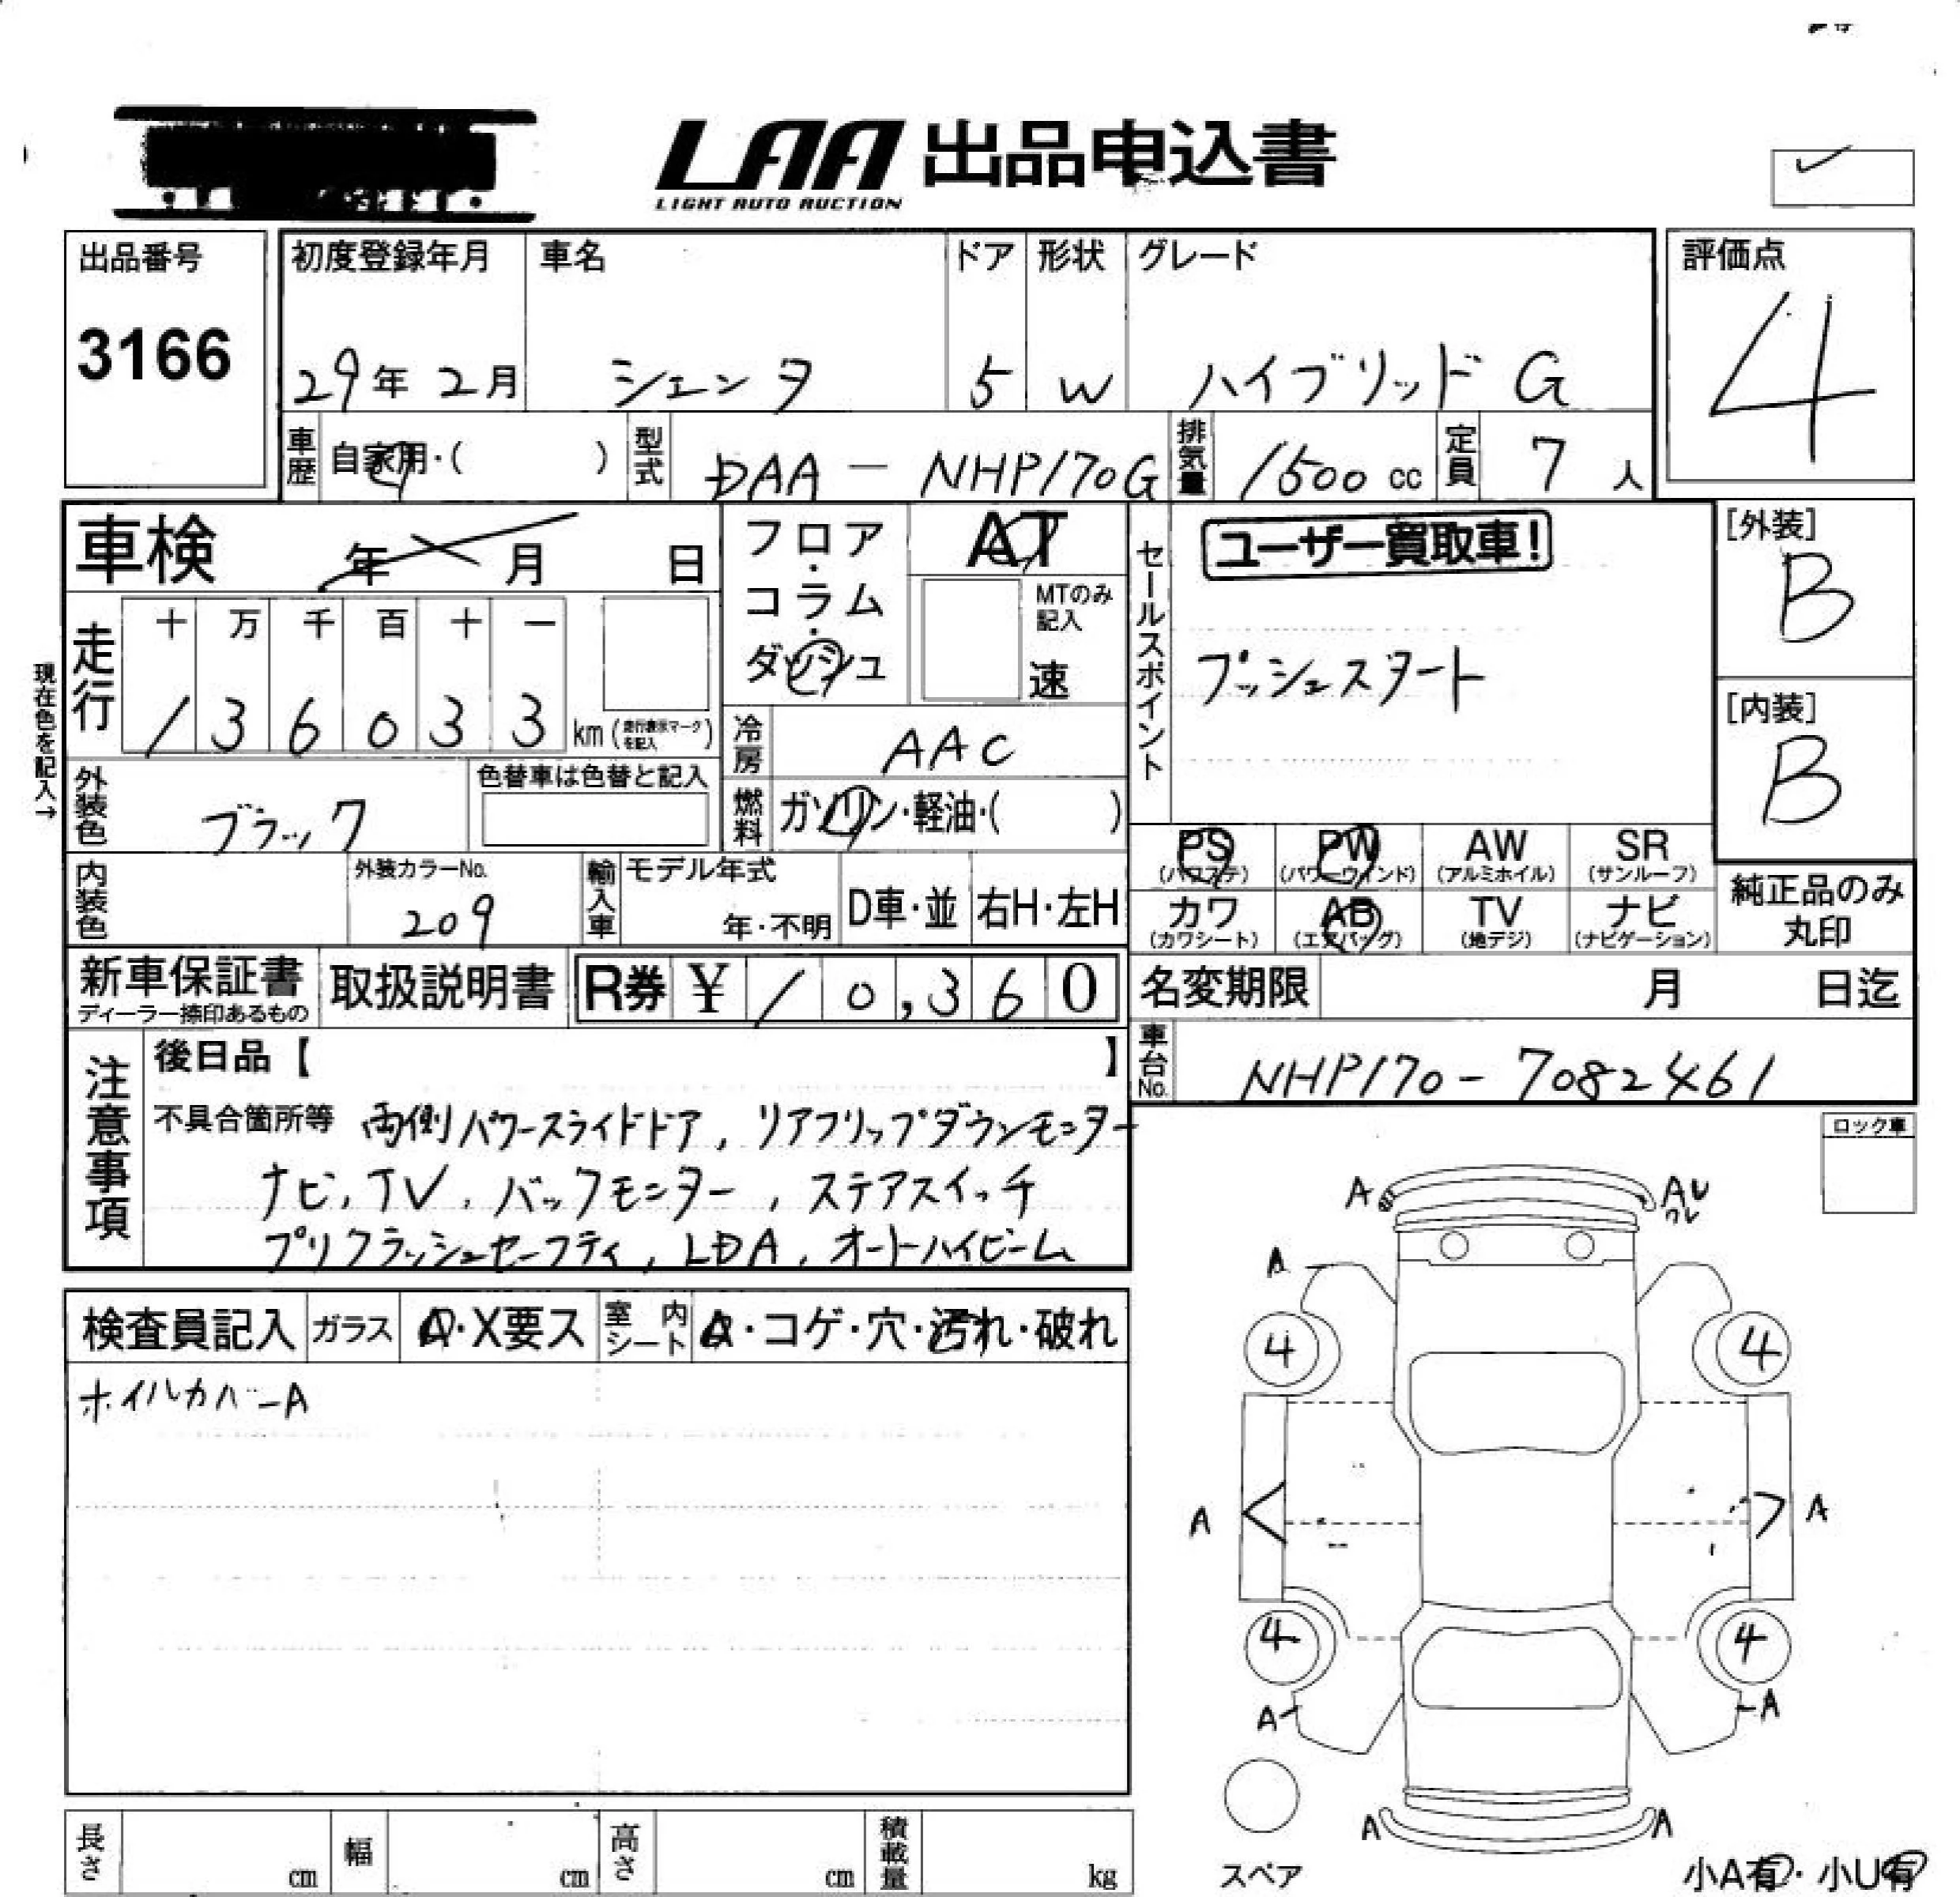 LAA 出品申込書
LIGHT AUTO AUCTION
出品番号
3166
初度登録年月
29年 2月
車名
シエンタ
ドア
5
形状
W
グレード
ハイブリッド G
評価点
4
車歴
自家用・( )
型式
DAA - NHP170G
排気量
1500 cc
定員
7 人
車検
年 月 日
現在色を記入→
走行
十 万 千 百 十 一
1 3 6 0 3 3 km (走行表示マークを記入)
外装色
ブラック
色替車は色替と記入
内装色
外装カラーNo.
209
フロア・コラム・ダッシュ
AT
MTのみ記入
速
冷房
AAC
燃料
ガソリン・軽油・( )
輸入車
モデル年式
年・不明
D車・並
右H・左H
セールスポイント
ユーザー買取車!
プッシュスタート
[外装]
B
[内装]
B
PS (パワステ)
PW (パワーウインド)
AW (アルミホイル)
SR (サンルーフ)
カワ (カワシート)
AB (エアバッグ)
TV (地デジ)
ナビ (ナビゲーション)
純正品のみ丸印
新車保証書
ディーラー捺印あるもの
取扱説明書
R券 ¥ 10,360
名変期限
月 日迄
車台No.
NHP170-7082461
注意事項
後日品【 】
不具合箇所等 両側パワースライドドア, リアフリップダウンモニター
ナビ, TV, バックモニター, ステアスイッチ
プリクラッシュセーフティ, LDA, オートハイビーム
ロック車
検査員記入
ガラス
・X要ス
室内シート
・コゲ・穴・汚れ・破れ
ホイルカバーA
A
AU
ワレ
A
4
4
A
A
4
4
A
A
A
A
スペア
小A有・小U有
長さ cm
幅 cm
高さ cm
積載量 kg